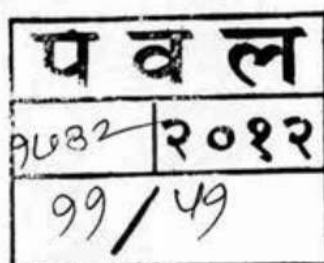 प व ल
१७३२ | २०१२
११ / ५१